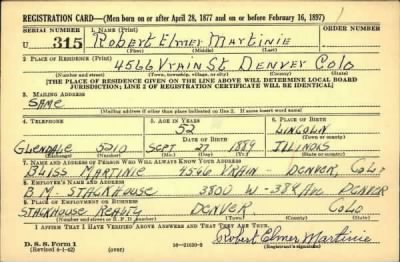 REGISTRATION CARD—(Men born on or after April 28, 1877 and on or before February 16, 1897)
SERIAL NUMBER 1. NAME (Print) ORDER NUMBER
U 315 Robert Elmer Martinie
(First) (Middle) (Last)
2. PLACE OF RESIDENCE (Print)
4566 Vrain St Denver Colo
(Number and street) (Town, township, village, or city) (County) (State)
[THE PLACE OF RESIDENCE GIVEN ON THE LINE ABOVE WILL DETERMINE LOCAL BOARD
JURISDICTION; LINE 2 OF REGISTRATION CERTIFICATE WILL BE IDENTICAL]
3. MAILING ADDRESS
Same
[Mailing address if other than place indicated on line 2. If same insert word same]
4. TELEPHONE 5. AGE IN YEARS 6. PLACE OF BIRTH
52 Lincoln
DATE OF BIRTH (Town or county)
Glendale 5210 Sept 27 1889 Illinois
(Exchange) (Number) (Mo.) (Day) (Yr.) (State or country)
7. NAME AND ADDRESS OF PERSON WHO WILL ALWAYS KNOW YOUR ADDRESS
Bliss Martinie 4566 Vrain - Denver, Colo
8. EMPLOYER'S NAME AND ADDRESS
B. M. Stackhouse 3800 W - 38th Ave Denver
9. PLACE OF EMPLOYMENT OR BUSINESS
Stackhouse Realty Denver Colo
(Number and street or R. F. D. number) (Town) (County) (State)
I AFFIRM THAT I HAVE VERIFIED ABOVE ANSWERS AND THAT THEY ARE TRUE.
D. S. S. Form 1
(Revised 4-1-42) (over) 16—21630-2 Robert Elmer Martinie
(Registrant's signature)